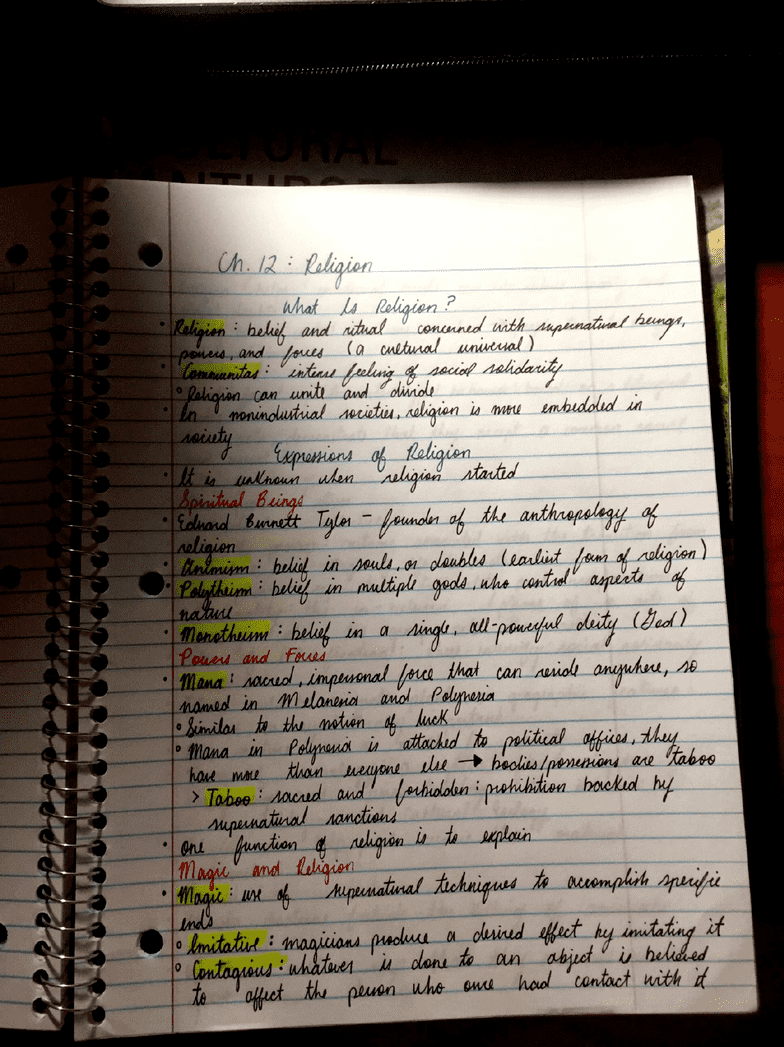 CULTURAL
Ch. 12 : Religion
What Is Religion?
• Religion : belief and ritual concerned with supernatural beings,
powers, and forces (a cultural universal)
• Communitas : intense feeling of social solidarity
° Religion can unite and divide
• In nonindustrial societies, religion is more embedded in
society
Expressions of Religion
• It is unknown when religion started
Spiritual Beings
• Edward Burnett Tylor - founder of the anthropology of
religion
• Animism : belief in souls, or doubles (earliest form of religion)
• Polytheism : belief in multiple gods, who control aspects of
nature
• Monotheism : belief in a single, all-powerful deity (God)
Powers and Forces
• Mana : sacred, impersonal force that can reside anywhere, so
named in Melanesia and Polynesia
° Similar to the notion of luck
° Mana in Polynesia is attached to political offices, they
have more than everyone else → bodies/possessions are taboo
> Taboo : sacred and forbidden : prohibition backed by
supernatural sanctions
• One function of religion is to explain
Magic and Religion
• Magic : use of supernatural techniques to accomplish specific
ends
° Imitative : magicians produce a desired effect by imitating it
° Contagious : whatever is done to an object is believed
to affect the person who once had contact with it